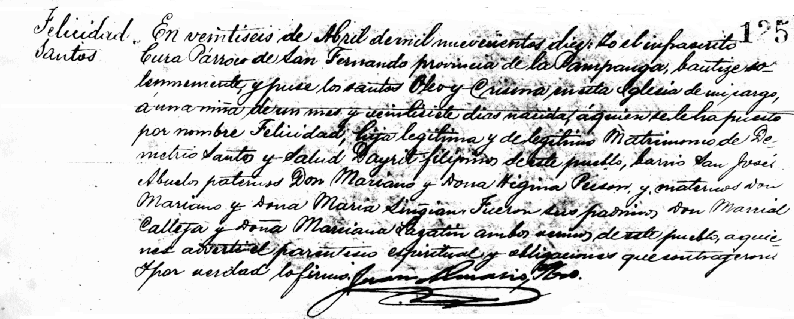 125
Felicidad
Santos
En veintiseis de Abril de mil nuevecientos diez. Yo el infrascrito
Cura Párroco de San Fernando provincia de la Pampanga, bautize so-
lennemente, y puse los santos Oleo y Crisma en esta Iglesia de mi cargo,
á una niña de un mes y veintisiete dias nacida, á quien se le ha puesto
por nombre Felicidad, hija legitima y de legitimo Matrimonio de De-
metrio Santos y Salud Dayrit filipinos de este pueblo, barrio San José.
Abuelos paternos Don Mariano y Doña Higina Pecson, y maternos Don
Mariano y Doña Maria Singian. Fueron sus padrinos Don
Calleja y Doña Marciana Lagatin ambos vecinos de este pueblo, a quie-
nes adverti el parentesco espiritual y obligaciones que contrageron.
Y por verdad lo firmo. Juan Pbro.